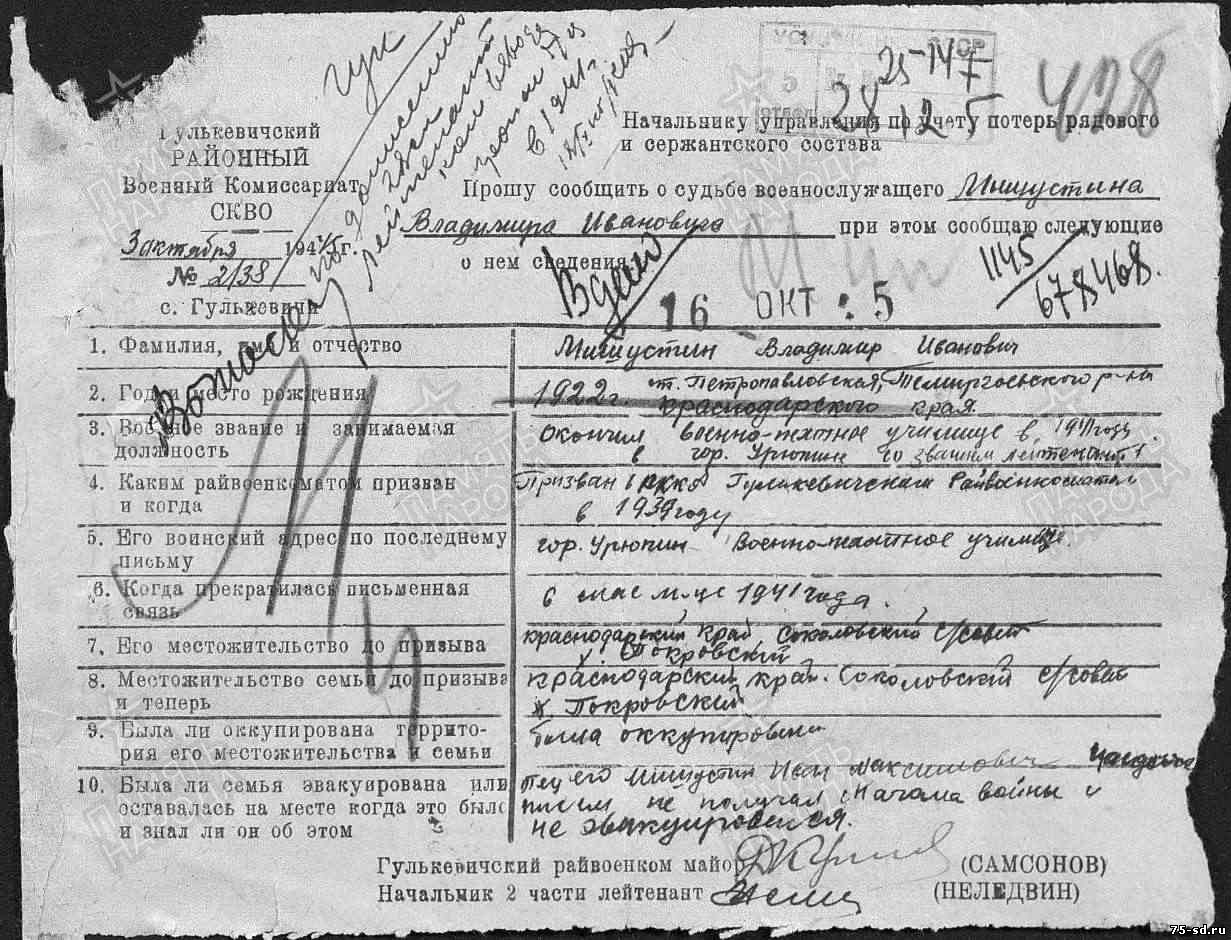 Гулькевичский
РАЙОННЫЙ
Военный Комиссариат
СКВО
3 октября 1945г.
№ 2/38
с. Гулькевичи
гук
25-147
28 12 5
428
Начальнику управления по учету потерь рядового
и сержантского состава
Прошу сообщить о судьбе военнослужащего Мишустина
Владимира Ивановича при этом сообщаю следующие
о нем сведения
1145
678468.
16 ОКТ 5
1. Фамилия, имя и отчество Мишустин Владимир Иванович
2. Год и место рождения 1922г. ст. Петропавловская, Темиргоевского р-на
Краснодарского края.
3. Военное звание и занимаемая
должность
окончил военно-пехотное училище в 1941 году
в гор. Урюпин со званием лейтенант
4. Каким райвоенкоматом призван
и когда
Призван в РККА Гулькевичским Райвоенкоматом
в 1939 году
5. Его воинский адрес по последнему
письму
гор. Урюпин Военно-пехотное училище.
6. Когда прекратилась письменная
связь
в мае м-це 1941 года.
7. Его местожительство до призыва
краснодарский край, Соколовский с/совет
х. Покровский
8. Местожительство семьи до призыва
и теперь
Краснодарский край. Соколовский с/совет
х Покровский
9. Была ли оккупирована террито-
рия его местожительства и семьи
была оккупирована
10. Была ли семья эвакуирована или
оставалась на месте когда это было
и знал ли он об этом
отец его Мишустин Иван Максимович
писем не получал сначала войны и
не эвакуировался.
Гулькевичский райвоенком майор (САМСОНОВ)
Начальник 2 части лейтенант (НЕЛЕДВИН)
ПАМЯТЬ НАРОДА
75-sd.ru